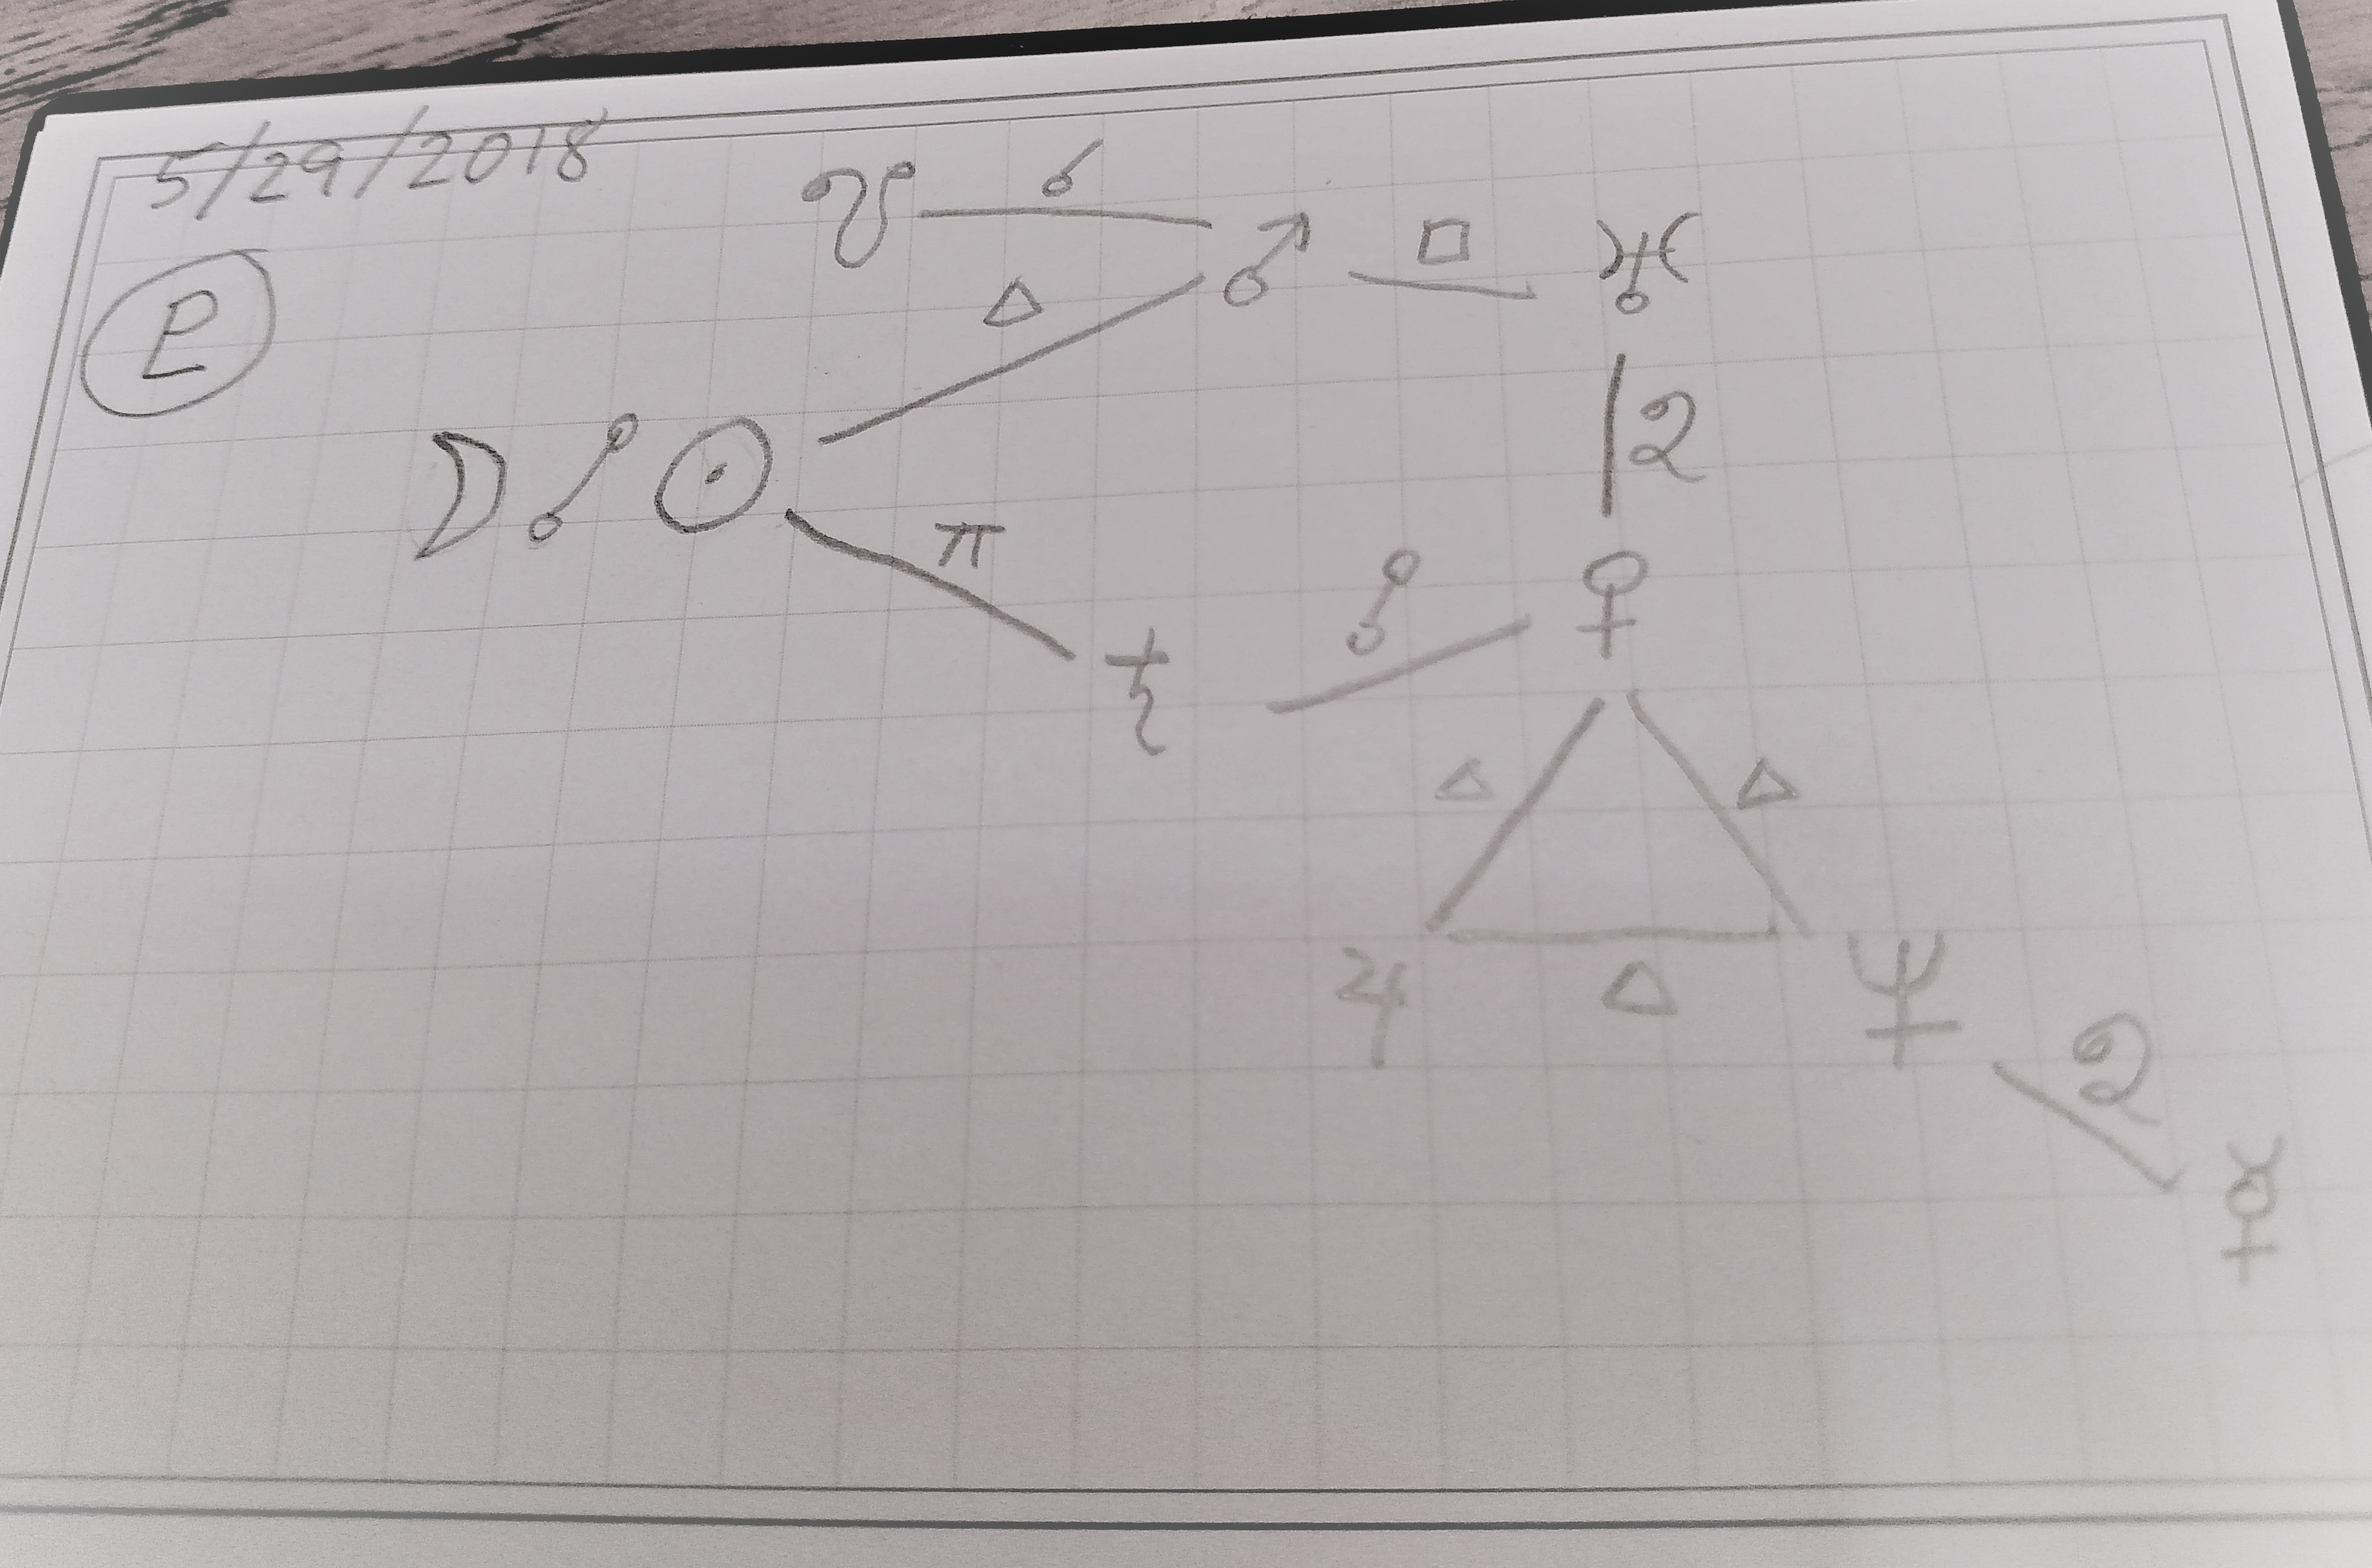 5/29/2018
☋ ☌ ♂ □ ♅
P
△
☽ ☍ ☉
2
π
♄ ☍ ♀
△ △
♃ △ ♆
2
☿